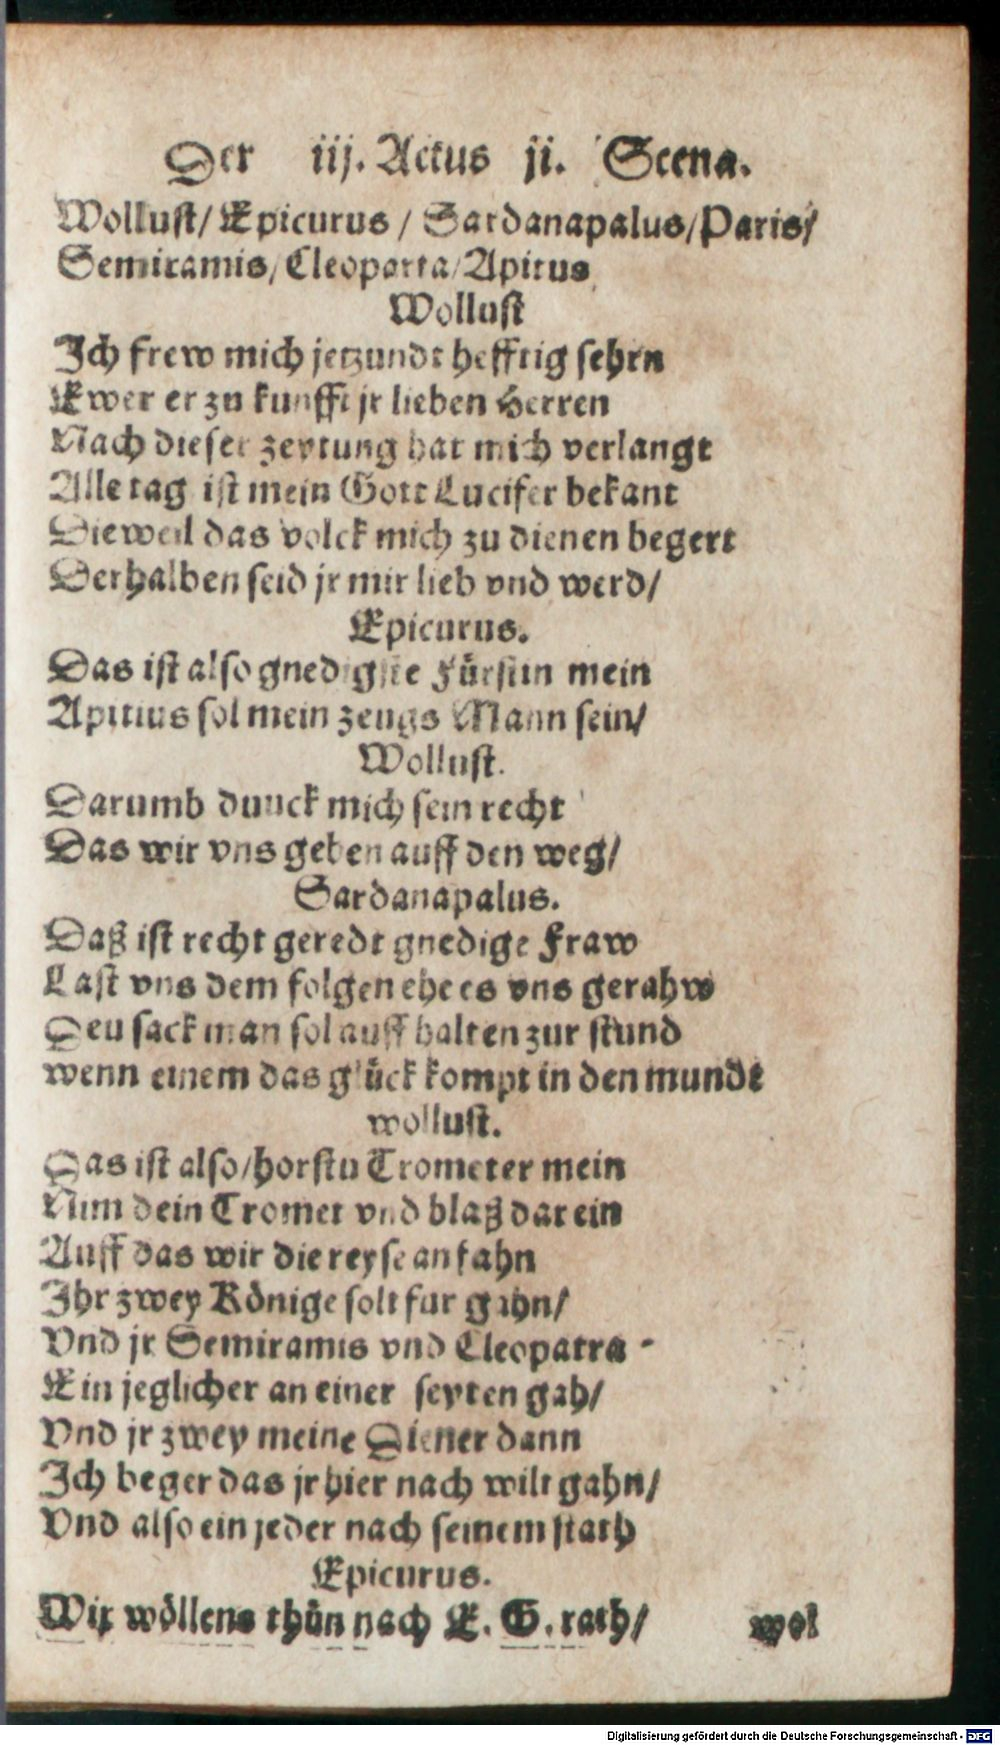 Der iij. Actus ji. Scena.
Wollust/ Epicurus / Sardanapalus/Paris/
Semiramis/ Cleoparta/Apitus
Wollust
Ich frew mich jetzundt hefftig sehrn
Ewer er zu kunfft jr lieben Herren
Nach dieser zeytung hat mich verlangt
Alle tag ist mein Gott Lucifer bekant
Dieweil das volck mich zu dienen begert
Derhalben seid jr mir lieb vnd werd/
Epicurus.
Das ist also gnedigste Fürstin mein
Apitius sol mein zeugs Mann sein/
Wollust.
Darumb duuck mich sein recht
Das wir vns geben auff den weg/
Sardanapalus.
Daß ist recht geredt gnedige Fraw
Last vns dem folgen ehe es vns gerahw
Deu sack man sol auff halten zur stund
wenn einem das glück kompt in den mundt
wollust.
Das ist also/horstu Trometer mein
Nim dein Tromet vnd blaß darein
Auff das wir die reyse anfahn
Ihr zwey Könige solt fur gahn/
Vnd jr Semiramis vnd Cleopatra
Ein jeglicher an einer seyten gah/
Vnd jr zwey meine Diener dann
Ich beger das jr hier nach wilt gahn/
Vnd also ein jeder nach seinem stath
Epicurus.
Wir wöllens thün nach E. G. rath/ wol
Digitalisierung gefördert durch die Deutsche Forschungsgemeinschaft - DFG